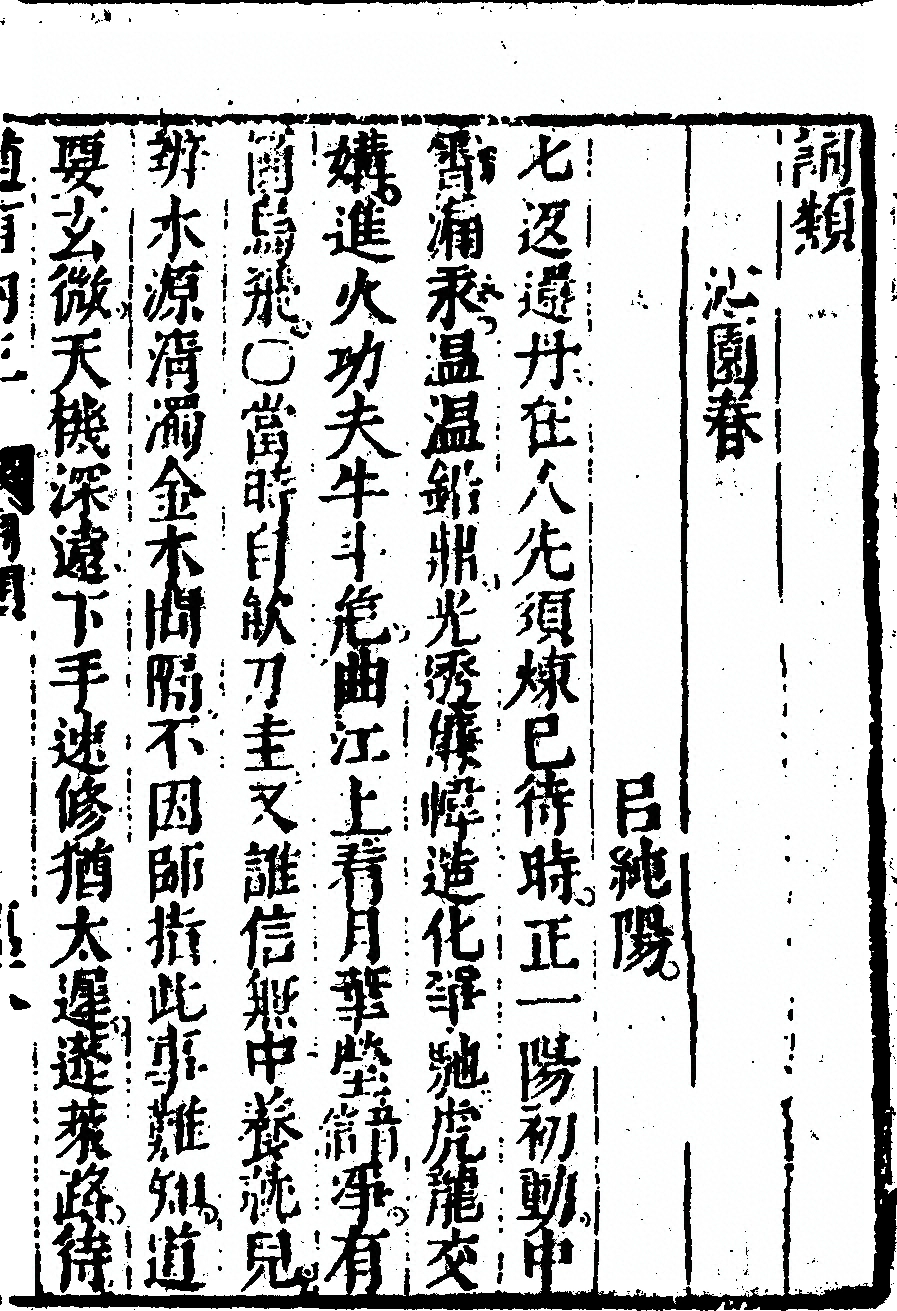 詞類
沁園春
呂純陽
七返還丹在人先須煉已待時正一陽初動中
霄漏永温温鉛鼎光透簾幃造化爭馳虎龍交
媾進火功夫牛斗危曲江上看月華瑩淨有
箇烏飛〇當時自飲刀圭又誰信無中養就兒
辨水源清濁金木間隔不因師指此事難知道
要玄微天機深遠下手速修猶太遲蓬萊路待